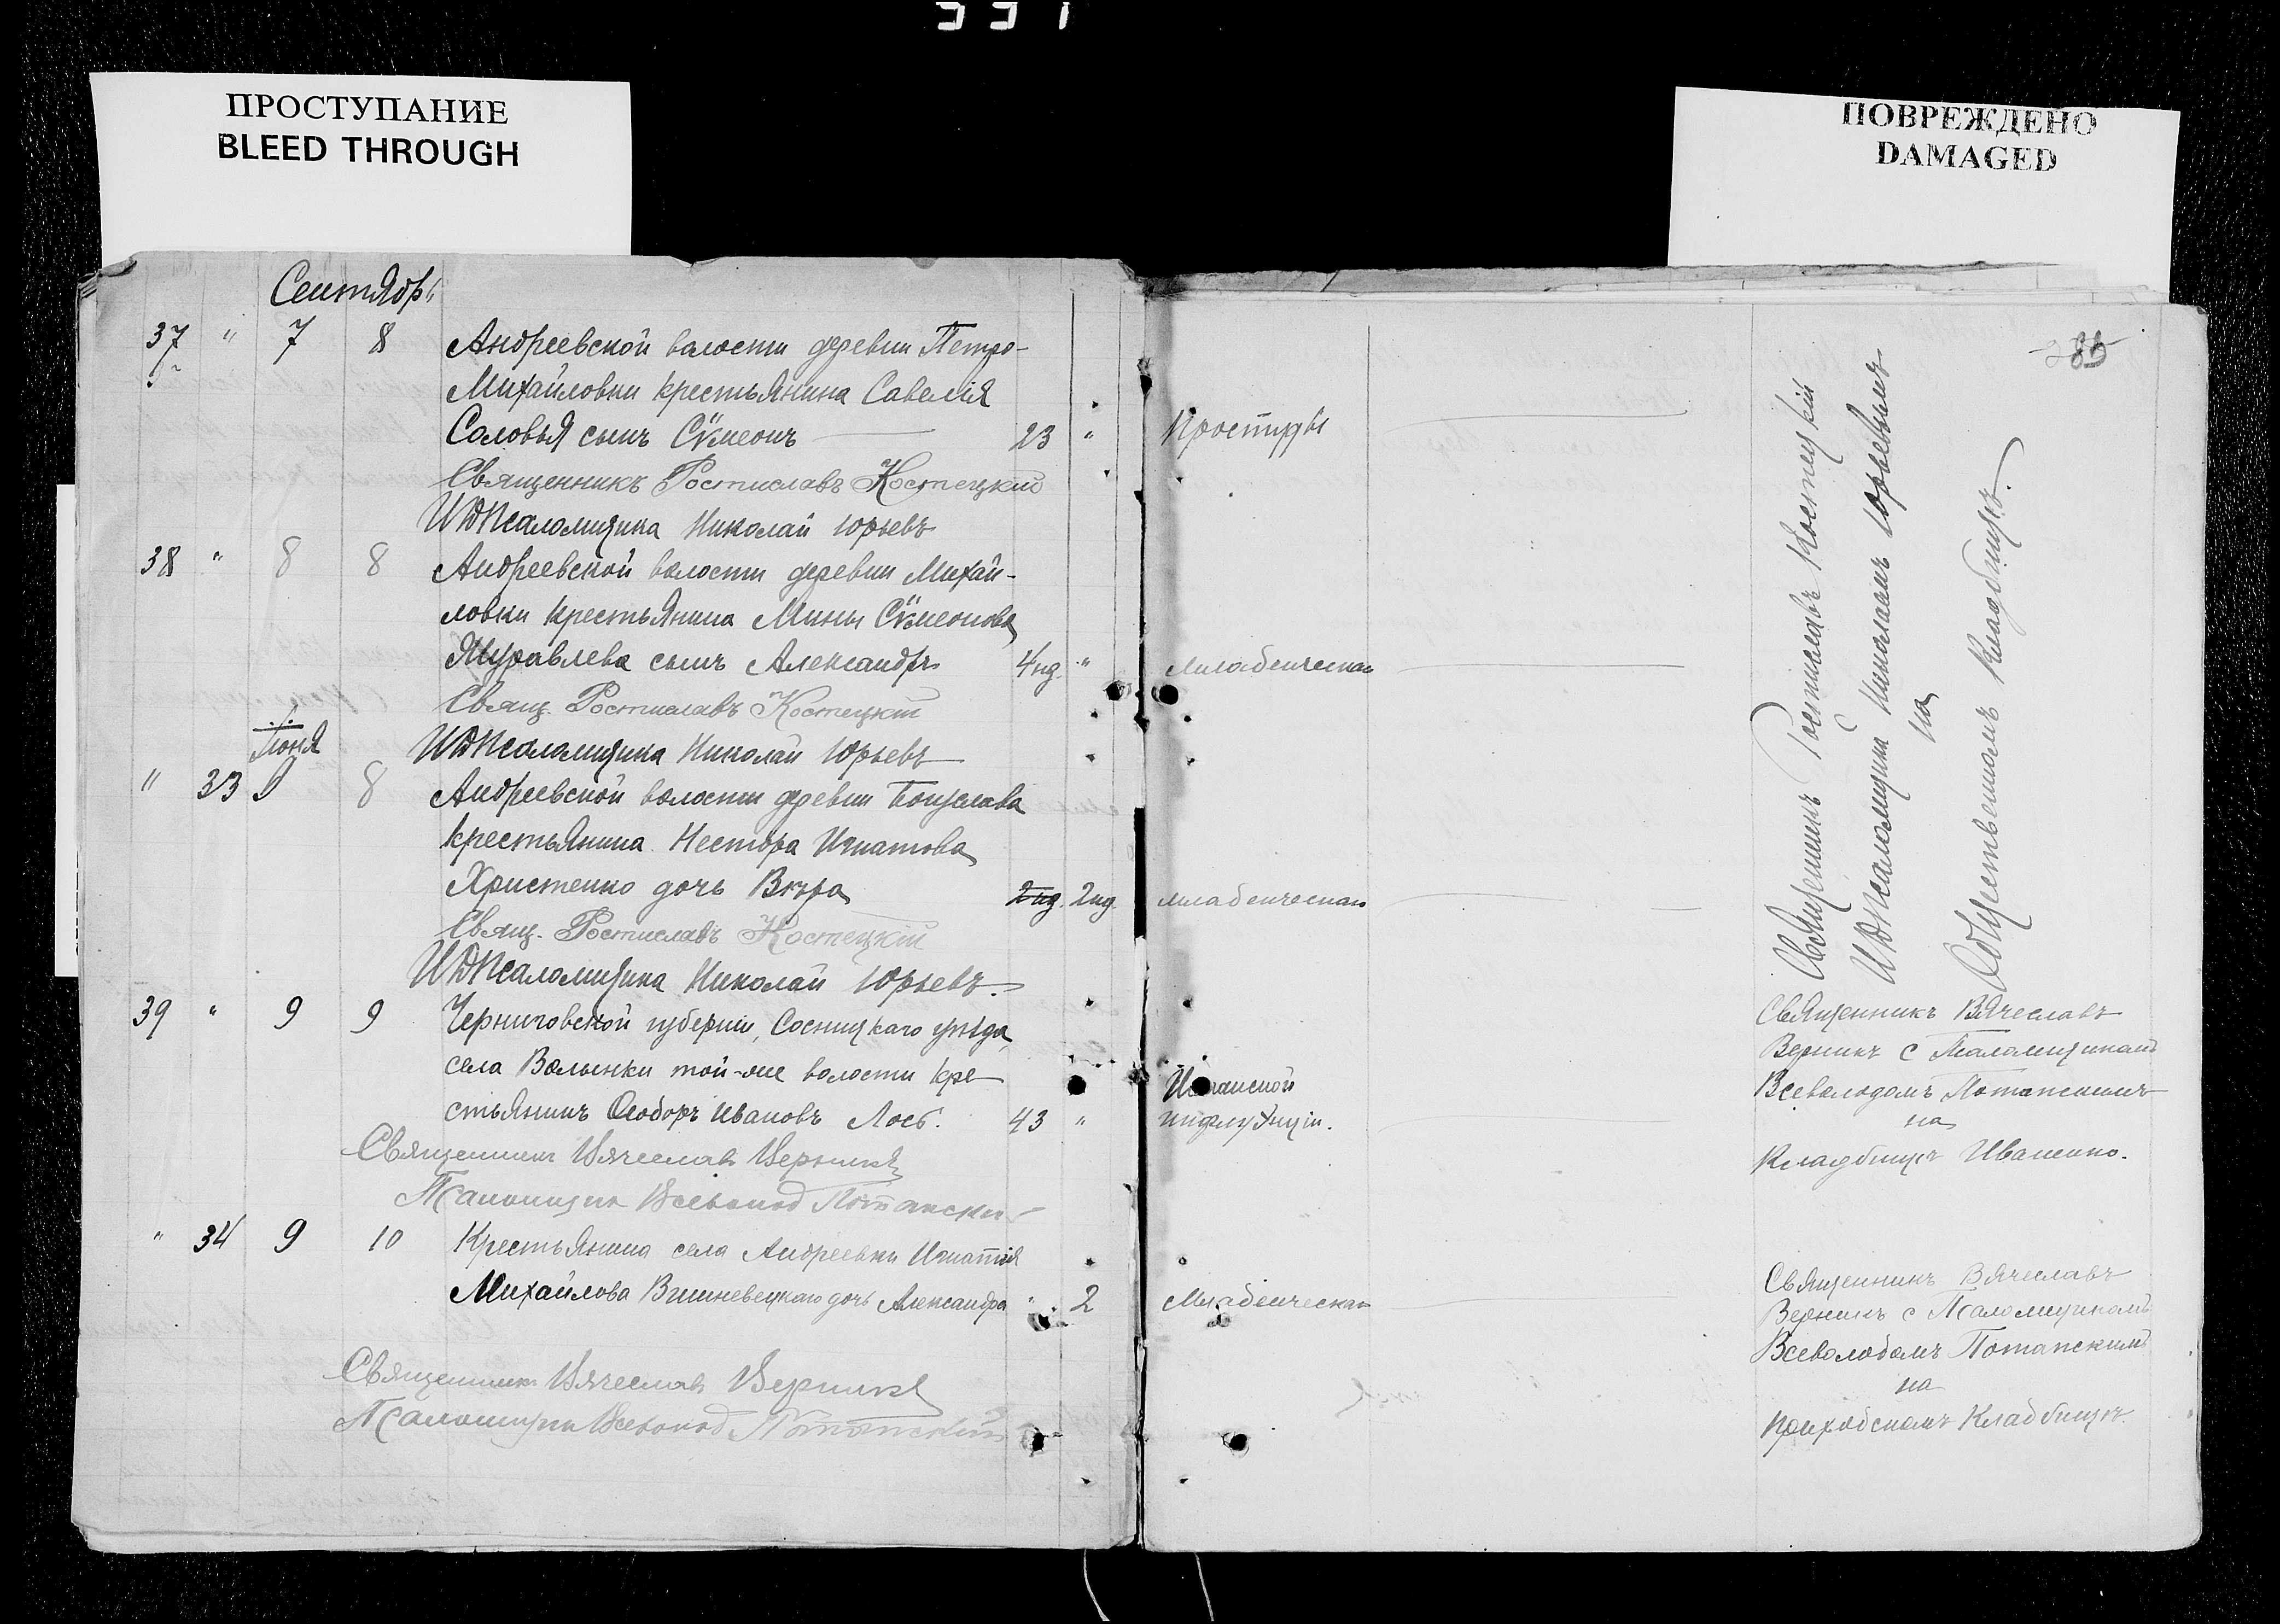 331
ПРОСТУПАНИЕ
BLEED THROUGH
ПОВРЕЖДЕНО
DAMAGED
Сентябрь
37 " 7 8 Андреевской волости деревни Петро-
Михайловки крестьянина Савелія
Соловья сынъ Сѵмеонъ 23 "
Священникъ Ростиславъ Костецкій
И Д Псаломщика Николай Юрьевъ
38 " 8 8 Андреевской волости деревни Михай-
ловки крестьянина Мины Сѵмеонова
Журавлева сынъ Александръ 4 нд. "
Свящ. Ростиславъ Костецкій
И Д Псаломщика Николай Юрьевъ
Іюня
" 33 8 Андреевской волости деревни Богуслава
крестьянина Нестора Игнатова
Христенко дочь Вѣра 2 нд. 2 нд.
Свящ. Ростиславъ Костецкій
И Д Псаломщика Николай Юрьевъ.
39 " 9 9 Черниговской губерніи, Сосницкаго уѣзда,
села Волынки той-же волости кре-
стьянинъ Ѳеодоръ Ивановъ Лось. 43 "
Священникъ Вячеславъ Верникъ
Псаломщикъ Всеволод Потапский
" 34 9 10 Крестьянина села Андреевки Игнатія
Михайлова Вишневецкаго дочь Александра " 2
Священникъ Вячеславъ Верникъ
Псаломщикъ Всеволод Потапский
85
Простуды
младенческая
младенческая
Испанской
инфлуэнціи.
Младенческая
Священникъ Ростиславъ Костецкій
И Д Псаломщика Николаемъ Юрьевымъ
на
Общественномъ кладбищѣ.
Священникъ Вячеславъ
Верникъ с Псаломщикомъ
Всеволодомъ Потапскимъ
на
Кладбищѣ Иваненко.
Священникъ Вячеславъ
Верникъ с Псаломщикомъ
Всеволодомъ Потапскимъ
на
приходскомъ Кладбищѣ